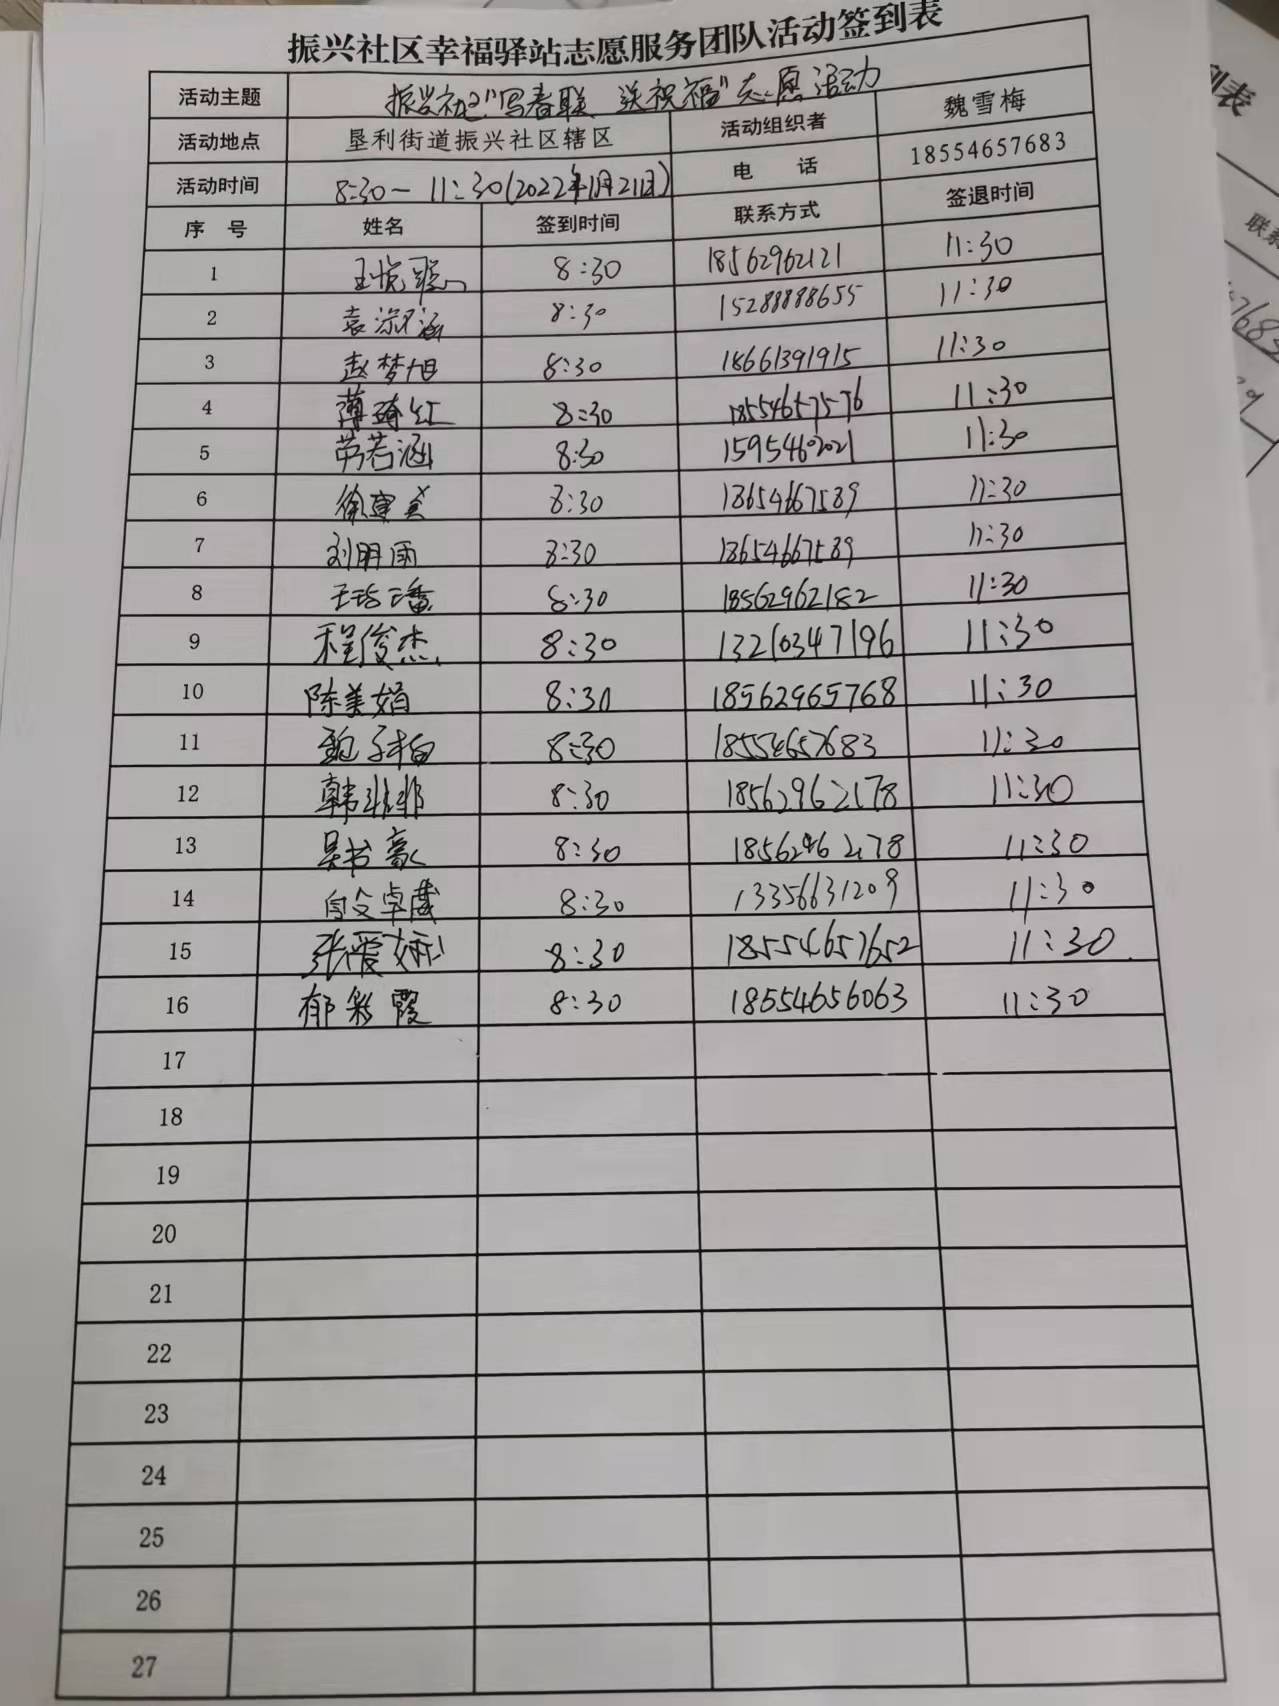 振兴社区幸福驿站志愿服务团队活动签到表
活动主题 振兴社区"写春联 送祝福"志愿活动
活动地点 垦利街道振兴社区辖区 活动组织者 魏雪梅
活动时间 8:30－11:30(2022年1月21日) 电 话 18554657683
序 号 姓名 签到时间 联系方式 签退时间
1 8:30 18562962121 11:30
2 8:30 15288888655 11:30
3 赵梦旭 8:30 18661391915 11:30
4 薄琦红 8:30 18554657576 11:30
5 若涵 8:30 15954602021 11:30
6 徐 8:30 18654667589 11:30
7 刘明雨 8:30 18654667589 11:30
8 8:30 18562962182 11:30
9 程俊杰 8:30 13210347196 11:30
10 陈美娟 8:30 18562965768 11:30
11 8:30 18554657683 11:30
12 韩非非 8:30 18562962178 11:30
13 吴书豪 8:30 18562962178 11:30
14 8:30 13356631209 11:30
15 张爱娜 8:30 18554657652 11:30
16 郁彩霞 8:30 18554656063 11:30
17
18
19
20
21
22
23
24
25
26
27
到表
联系